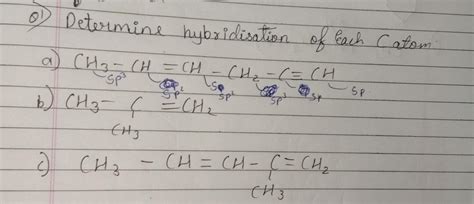 Q) Determine hybridisation of Each C atom
a) CH3 - CH = CH - CH2 - C ≡ CH
sp3 sp2 sp2 sp3 sp sp
b) CH3 - C = CH2
CH3
c) CH3 - CH = CH - C = CH2
CH3